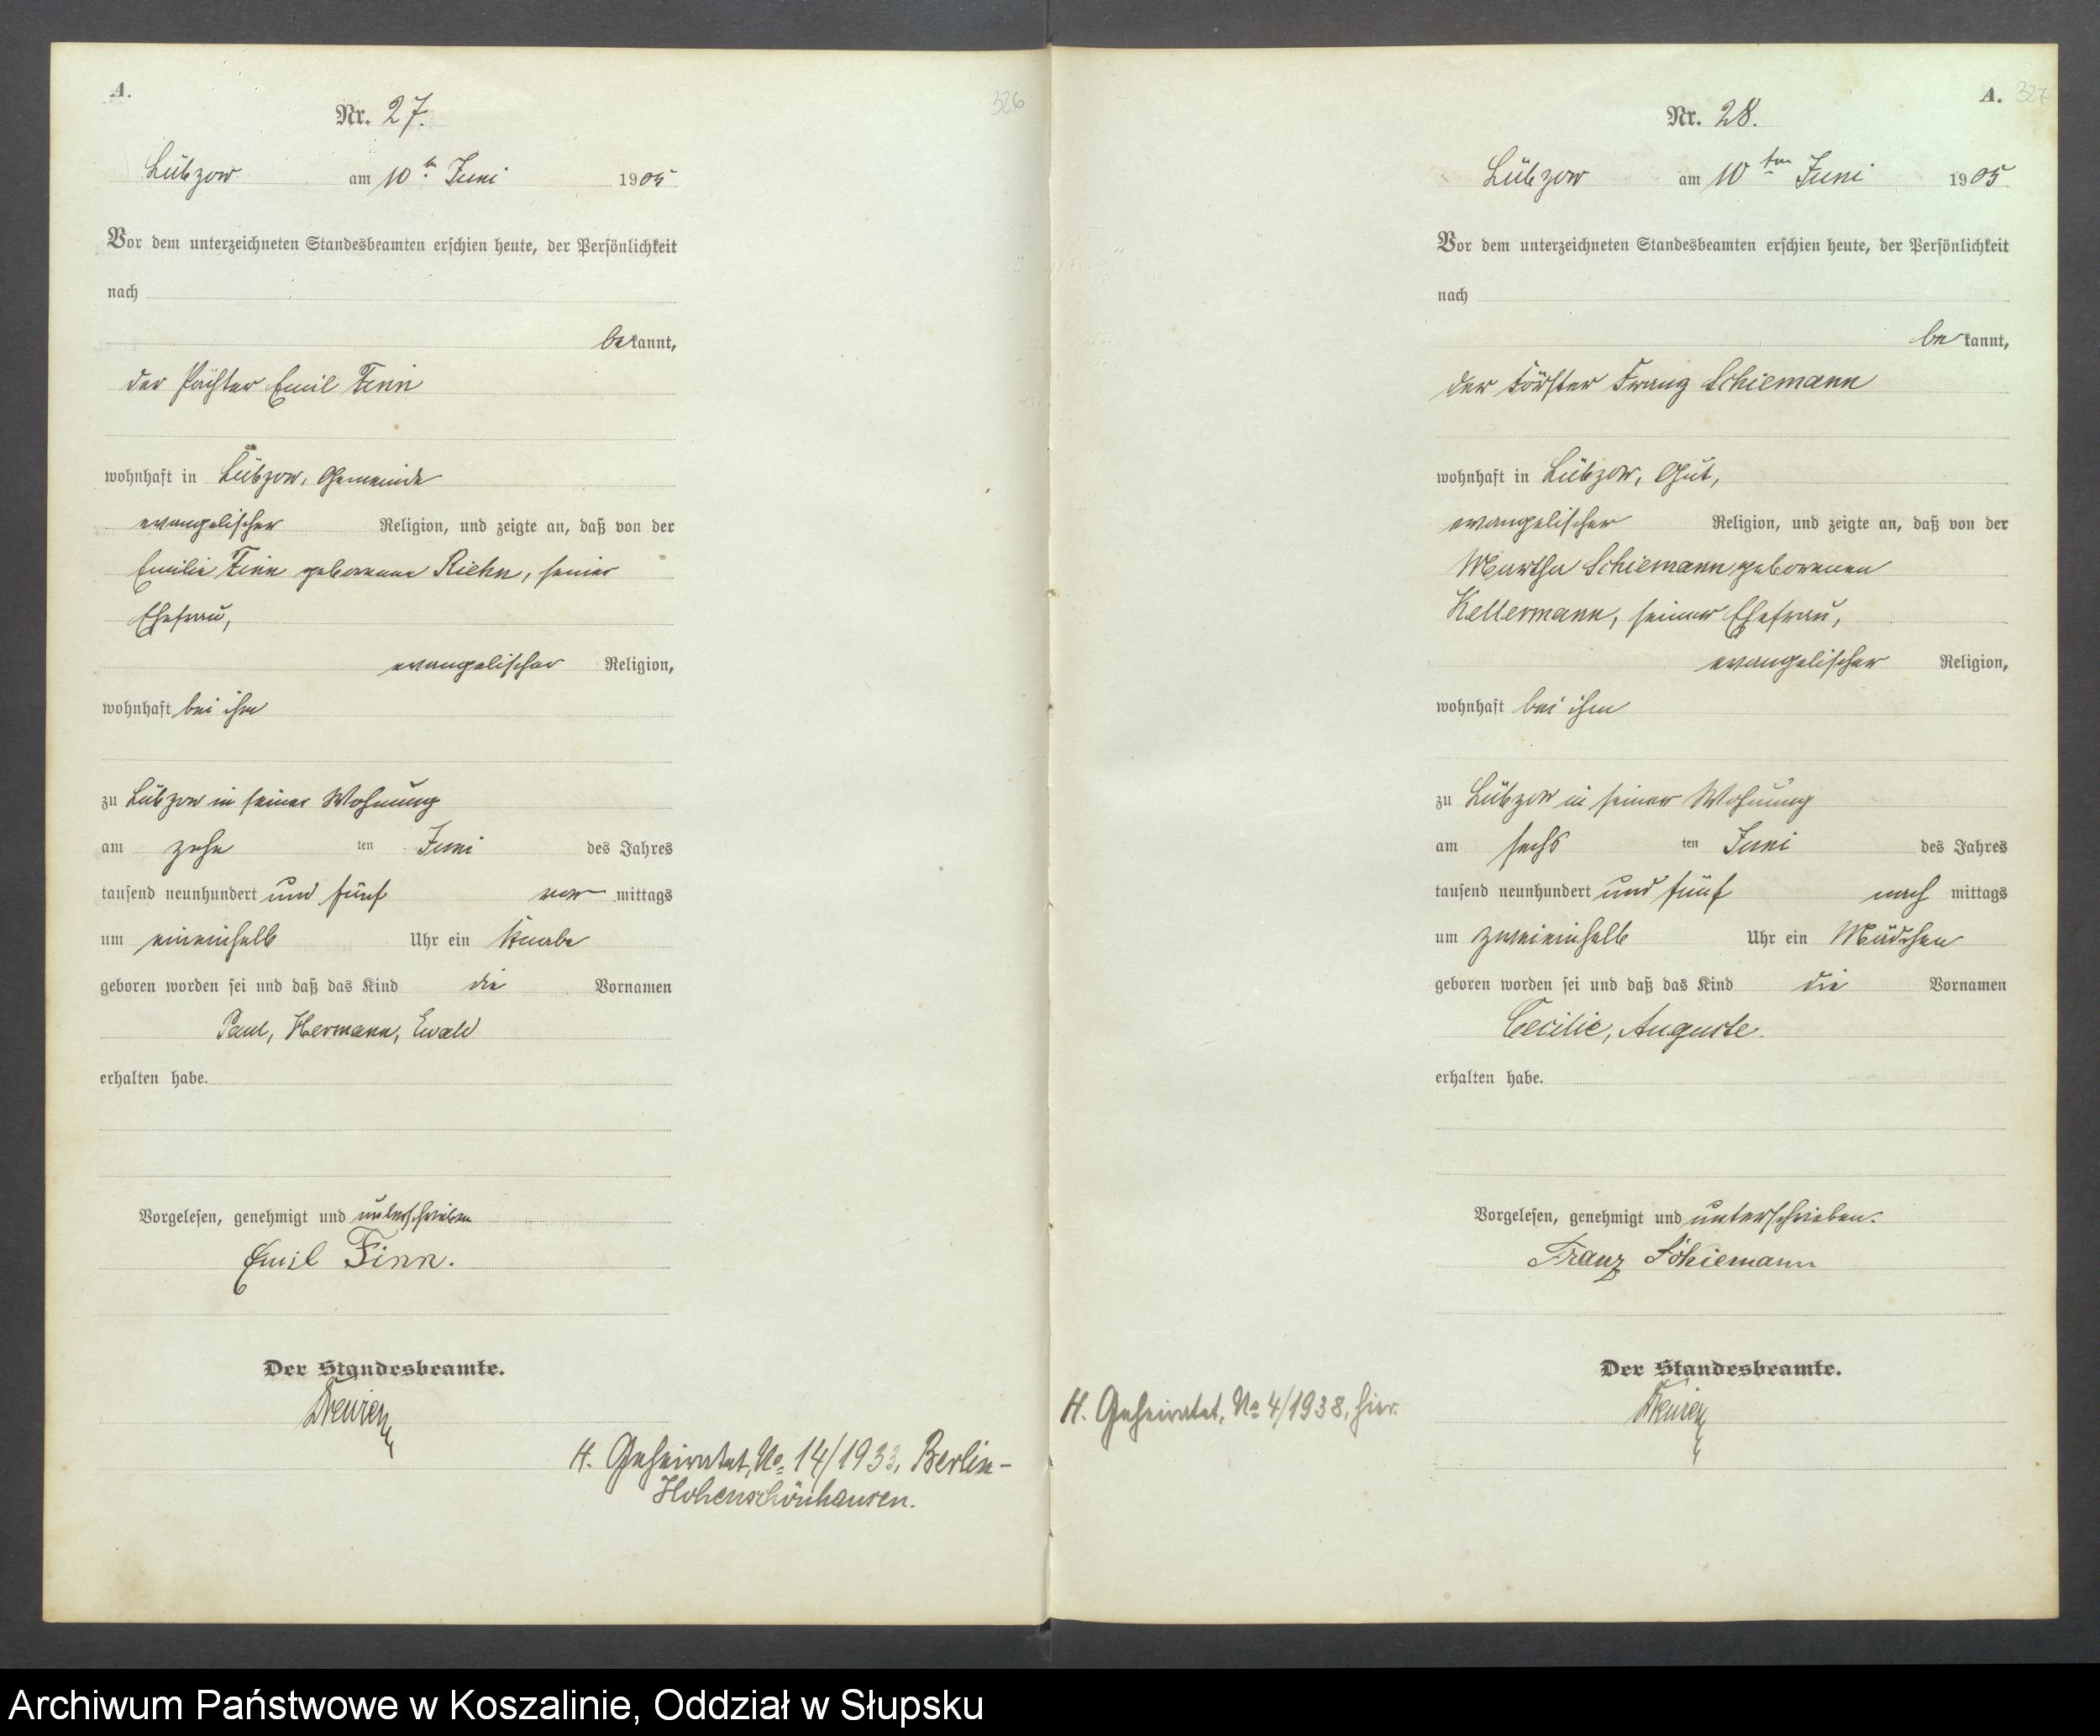 A.
326
Nr. 27.
Lübzow am 10t Juni 1905
Vor dem unterzeichneten Standesbeamten erschien heute, der Persönlichkeit
nach
bekannt,
der Pächter Emil Finn
wohnhaft in Lübzow, Gemeinde
evangelischer Religion, und zeigte an, daß von der
Emilie Finn geborenen Riehn, seiner
Ehefrau,
evangelischer Religion,
wohnhaft bei ihm
zu Lübzow in seiner Wohnung
am zehn ten Juni des Jahres
tausend neunhundert und fünf vor mittags
um eineinhalb Uhr ein Knabe
geboren worden sei und daß das Kind die Vornamen
Paul, Hermann, Ewald
erhalten habe.
Vorgelesen, genehmigt und unterschrieben
Emil Finn.
Der Standesbeamte.
H. Geheiratet, No 14/1933, Berlin-
Hohenschönhausen.
A. 327
Nr. 28.
Lübzow am 10ten Juni 1905
Vor dem unterzeichneten Standesbeamten erschien heute, der Persönlichkeit
nach
bekannt,
der Förster Franz Schiemann
wohnhaft in Lübzow, Gut,
evangelischer Religion, und zeigte an, daß von der
Martha Schiemann geborenen
Kellermann, seiner Ehefrau,
evangelischer Religion,
wohnhaft bei ihm
zu Lübzow in seiner Wohnung
am sechs ten Juni des Jahres
tausend neunhundert und fünf nach mittags
um zweieinhalb Uhr ein Mädchen
geboren worden sei und daß das Kind die Vornamen
Cecilie, Auguste.
erhalten habe.
Vorgelesen, genehmigt und unterschrieben.
Franz Schiemann
Der Standesbeamte.
H. Geheiratet, No 4/1938, hier.
Archiwum Państwowe w Koszalinie, Oddział w Słupsku